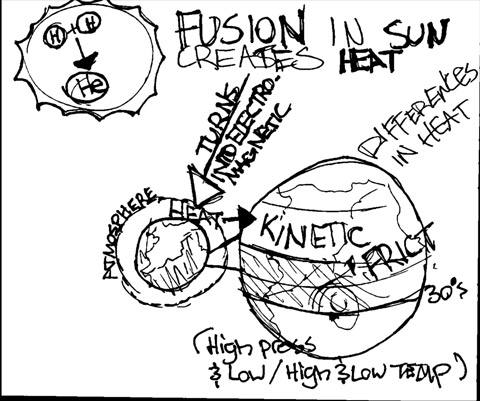 H + H
He
FUSION IN SUN
CREATES HEAT
TURNS
INTO ELECTRO-
MAGNETIC
DIFFERENCES
IN HEAT
ATMOSPHERE
HEAT
KINETIC
FRICT
30°s
(High press
& Low / High & Low TEMP)